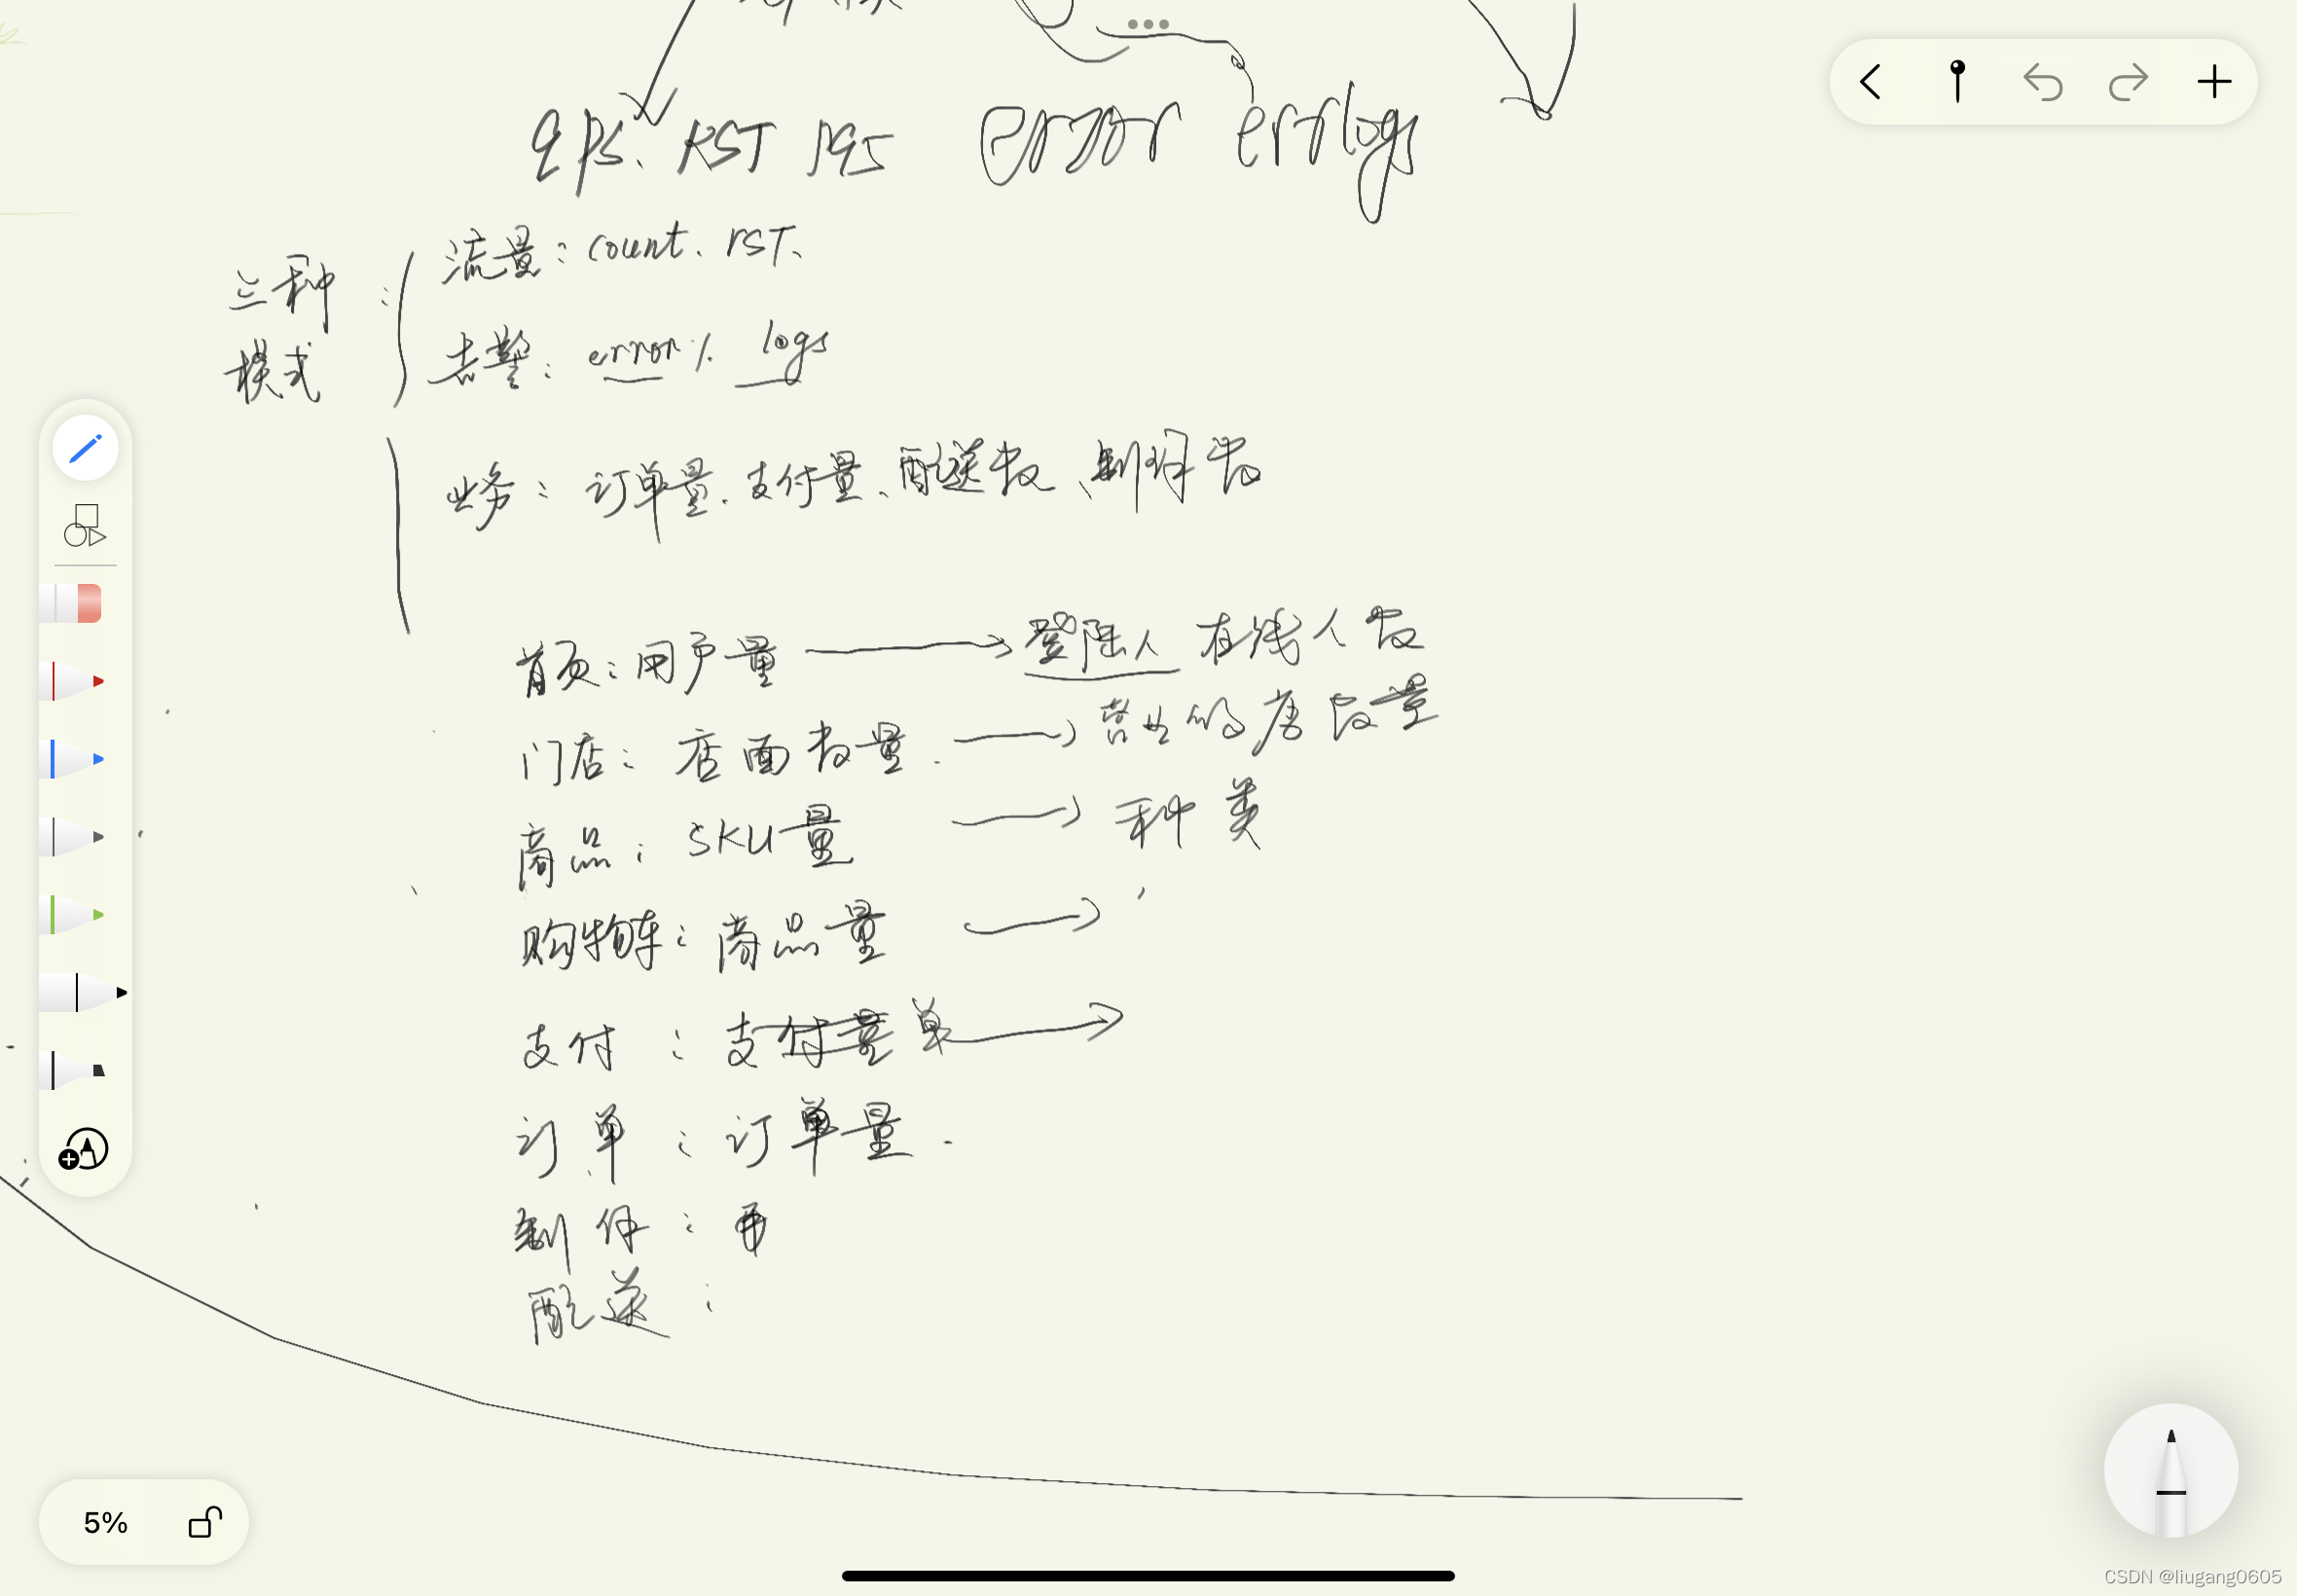 qps、RST error errlogs
三种模式：
流量：count、RST、
告警：error% logs
业务：订单量、支付量、配送数、制作数
首页：用户量 登陆人 在线人数
门店：店面数量. 营业的店数量
商品：SKU量 种类
购物车：商品量
支付：支付量单
订单：订单量.
制作：
配送：
5%
CSDN @liugang0605